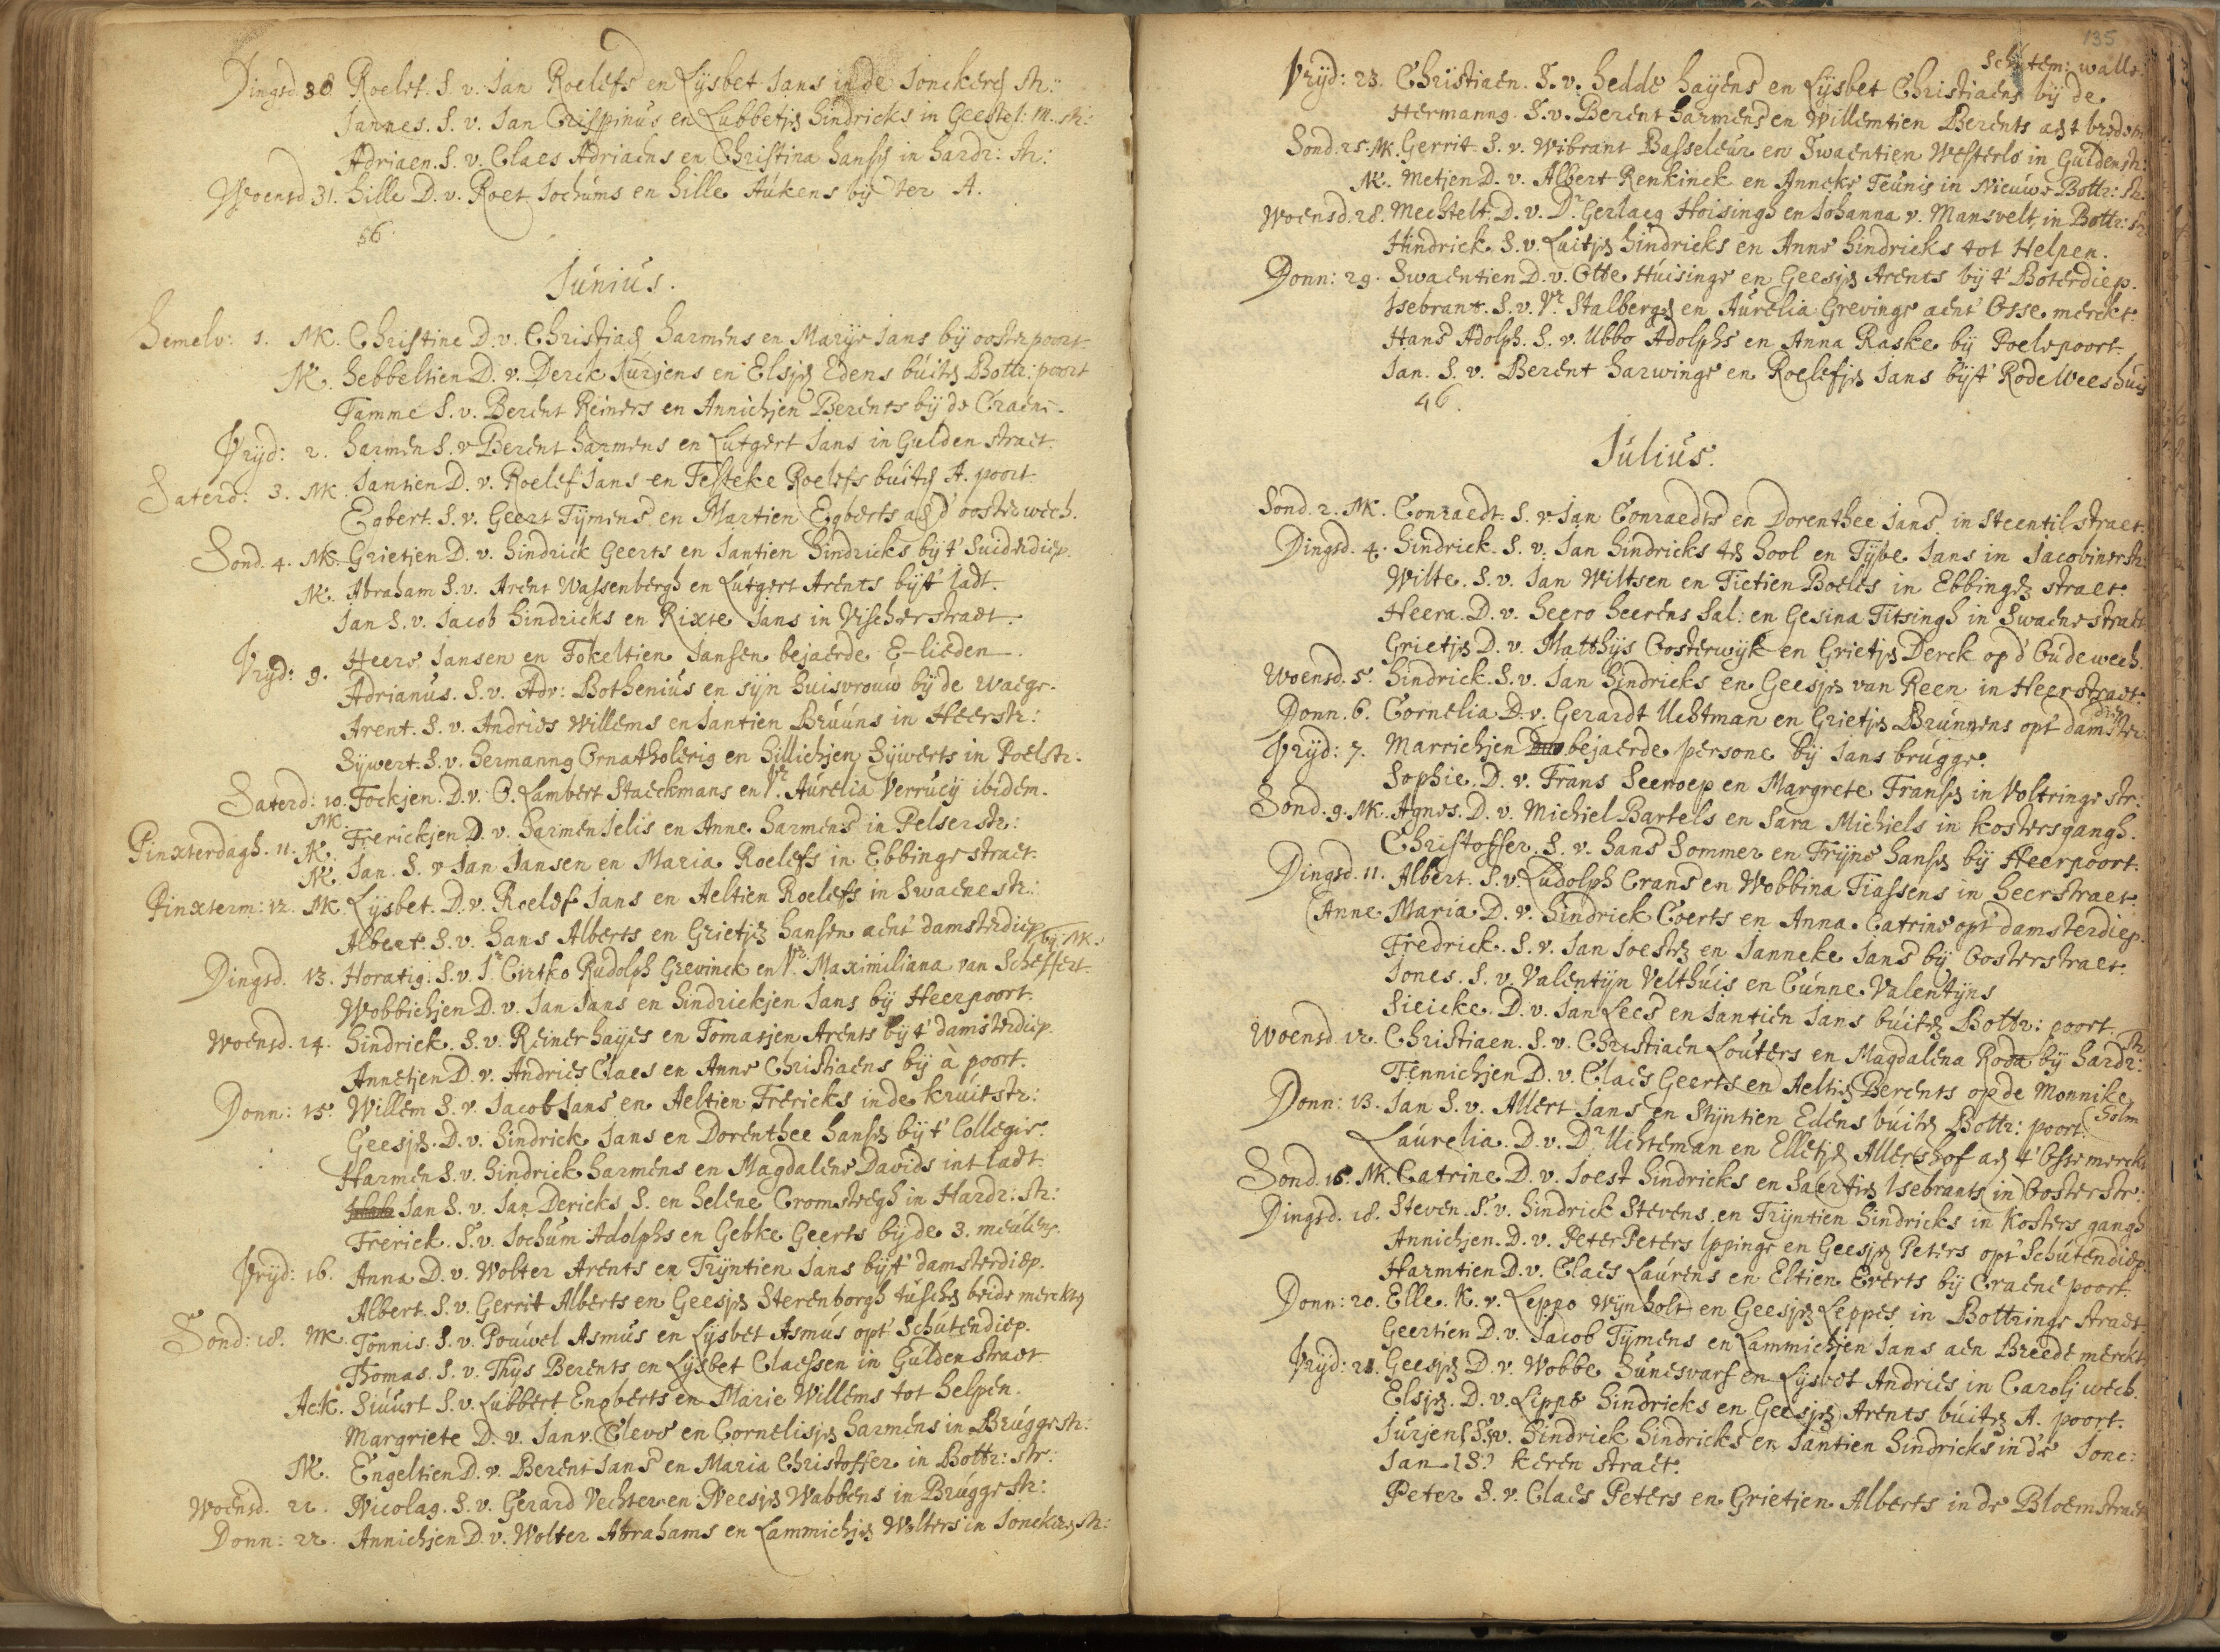 Dingsd 30. Roelef. S. v. Jan Roelefs en Lÿsbet Jans in de Jonckers str:
Jannes. S. v. Jan Crispinus en Lubbetjen hindricks in Geestel: M. str:
Adriaen. S. v. Claes Adriaens en Christina hansen in hardr: str:
Woensd 31. hille D. v. Roet Jochums en hille Aukens bÿ ter A.
56.
Junius.
hemelv: 1. NK. Christine D. v. Christiaen harmens en Marÿe Jans bÿ oosterpoort.
NK. hebbeltien D. v. Derck Jurjens en Elsjen Edens buiten Bottr: poort
Tamme S. v. Berent Reiners en Annichjen Berents bÿ de Craene.
Vrÿd: 2. harmen S. v Berent harmens en Lutgert Jans in Gulden straet.
Saterd: 3. NK. Jantien D. v. Roelef Jans en Festeke Roelefs buiten A. poort
Egbert. S. v. Geert Tÿmens en Martien Egberts aen d' oosterwech.
Sond. 4. NK. Grietjen D. v. hindrick Geerts en Jantien hindricks bÿ t' Suiderdiep.
NK. Abraham S. v. Arent Wassenbergh en Lutgert Arents bÿ t' Jadt.
Jan S. v. Jacob hindricks en Rixte Jans in Vischerstraet.
Vrÿd: 9. Heere Jansen en Fokeltien Jansen bejaerde E-lieden.
Adrianus. S. v. Adr: Bothenius en sÿn huisvrouw bÿ de waege.
Arent. S. v. Andries Willems en Jantien Bruuns in Heerstr:
Sÿwert. S. v. hermannus Ornatholerig en hillichjen Sÿwerts in Poelstr.
Saterd: 10. Fockjen. D. v. O. Lambert Staeckmans en Vr. Aurelia Verrucÿ ibidem.
Pinxterdagh. 11. NK. Frerickjen D. v. harmen Jelis en Anne harmens in Pelserstr:
NK. Jan. S. v Jan Jansen en Maria Roelefs in Ebbinge straet.
Pinxterm: 12. NK. Lÿsbet. D. v. Roelof Jans en Aeltien Roelefs in Swaenestr:
Albert. S. v. hans Alberts en Grietjen hansen aent damsterdiep
bÿ NK.
Dingsd. 13. Horatig. S. v. Jr Cirtko Rudolph Grevinck en Vr. Maximiliana van Scheffert.
Wobbichjen D. v. Jan Jans en hindrickjen Jans bÿ Heerpoort.
Woensd. 14. hindrick. S. v. Reiner hayes en Tomasjen Arents bÿ t' damsterdiep.
Annetjen D. v. Andries Claes en Anne Christiaens bÿ à poort.
Donn: 15. Willem S. v. Jacob Jans en Aeltien Frericks in de kruitstr:
Geesjen. D. v. hindrick Jans en Dorenthee hansen bÿ t' Collegie.
Harmen S. v. hindrick harmens en Magdalene Davids int Jadt.
Jan S. v. Jan Dericks S. en helene Cromstegh in Hardr: str:
Frerick. S. v. Jochum Adolphs en Gebke Geerts bÿ de 3. meulens.
Vrÿd: 16. Anna D. v. Wolter Arents en Trÿntien Jans bÿ t' damsterdiep.
Albert. S. v. Gerrit Alberts en Geesjen Sterenborgh tuschen beide merckten
Sond: 18. NK. Tonnis. S. v. Pouwel Asmus en Lÿsbet Asmus opt Schutendiep.
Thomas. S. v. Thÿs Berents en Lÿsbet Claessen in Gulden straet.
AcK. Siuurt S. v. Lubbert Engberts en Marie Willems tot helpen.
Margriete D. v. Jan v. Cleve en Cornelisjen harmens in Bruggestr:
NK. Engeltien D. v. Berent Jans en Maria Christoffer in Bottr: str:
Woensd. 21. Nicolaus. S. v. Gerard Vechter en Neesjen Wabbens in Bruggestr:
Donn: 22. Annichjen D. v. Wolter Abrahams en Lammichjen Wolters in Jonckers str:
135
Vrÿd: 23. Christiaen. S. v. hedde hayens en Lÿsbet Christiaens bÿ de
Schutem: walle.
Hermannus. S. v. Berent harmens en Willemtien Berents aen t
Sond. 25. NK. Gerrit. S. v. Wibrant Basseleur en Swaentien Westerlo in Guldenstr:
NK. Metjen D. v. Albert Renkinck en Anneke Teunis in Nieuwe Bottr: str.
Woensd. 28. Mechtelt. D. v. Dr Gerlacg Hoisingh en Johanna v. Mansvelt, in Bottr: str
Hindrick. S. v. Luitjen hindricks en Anne hindricks tot Helpen.
Donn: 29. Swaentien D. v. Otte Huisinge en Geesjen Arents bÿ t' Boterdiep.
Isebrant. S. v. Vr. Stalbergen en Aurelia Grevinge aent Osse merckt.
Hans Adolph. S. v. Ubbo Adolphs en Anna Raske bÿ Poelepoort.
Jan. S. v. Berent harwinge en Roelefjen Jans bÿ t' Rode Weeshuis
46.
Julius.
Sond. 2. NK. Conraedt. S. v. Jan Conraedts en Dorenthee Jans in Steentil straet.
Dingsd. 4. hindrick. S. v. Jan hindricks ten hool en Tÿbe Jans in Jacobinerstr:
Wilte. S. v. Jan Wiltsen en Tietien Boeles in Ebbingen straet.
Heera. D. v. heero heerens Sal: en Gesina Titsingh in Swaene straet
Grietjen D. v. Matthÿs Oosterwÿk en Grietjen Derck op d' Oudewech.
Woensd. 5. hindrick. S. v. Jan hindricks en Geesjen van Reen in Heerstraet.
Donn. 6. Cornelia D. v. Gerardt Uchtman en Grietjen Brunnens opt damster
diep
Vrÿd: 7. Marrichjen bejaerde persone bÿ Jans brugge.
Sophie. D. v. Frans Seenoep en Margrete Fransen in Voltringe str:
Sond. 9. NK. Agnes. D. v. Michiel Bartels en Sara Michiels in kostersgangh.
Christoffer. S. v. hans Sommer en Trÿne hansen bÿ Heerpoort.
Dingsd. 11. Albert. S. v. Ludolph Crans en Wobbina Tiassens in heerstraet.
Anne Maria D. v. hindrick Coerts en Anna Catrine opt damsterdiep.
Fredrick. S. v. Jan Joesten en Janneke Jans bÿ Oosterstraet.
Jones. S. v. Valentÿn Velthuis en Gunne Valentÿns
Sieicke. D. v. Jan Lees en Jantien Jans buiten Bottr: poort.
Woensd. 12. Christiaen. S. v. Christiaen Louters en Magdalena Roda bÿ hardr:
str
Tennichjen D. v. Claes Geerts en Aeltien Berents op de Monnike
holm
Donn: 13. Jan S. v. Allert Jans en Stÿntien Edens buiten Bottr: poort.
Laurelia. D. v. Dr Uchteman en Elletjen Allershof aen t' Osse merckt
Sond. 16. NK. Catrine D. v. Joest hindricks en Saertien Isebrants in Oosterstr:
Dingsd. 18. Steven. S. v. hindrick Stevens en Trÿntien hindricks in kosters gangh
Annichjen. D. v. Peter Peters Ippinge en Geesjen Peters opt Schutendiep.
Harmtien D. v. Claes Laurens en Eltien Everts bÿ Craene poort.
Donn: 20. Elle. K. v. Leppo Wÿnholt en Geesjen Leppes in Bottringe straet.
Geertien D. v. Jacob Tÿmens en Lammichjen Jans aen Breede merckt.
Vrÿd: 21. Geesjen D. v. Wobbe Sunesvarf en Lÿsbet Andries in Carolj wech.
Elsjen. D. v. Lippe hindricks en Geesjen Arents buiten A. poort.
Jurjen S. v. hindrick hindricks en Jantien hindricks in de Jonc:
Jan S. keren straet.
Peter S. v. Claes Peters en Grietjen Alberts in de Bloemstraet